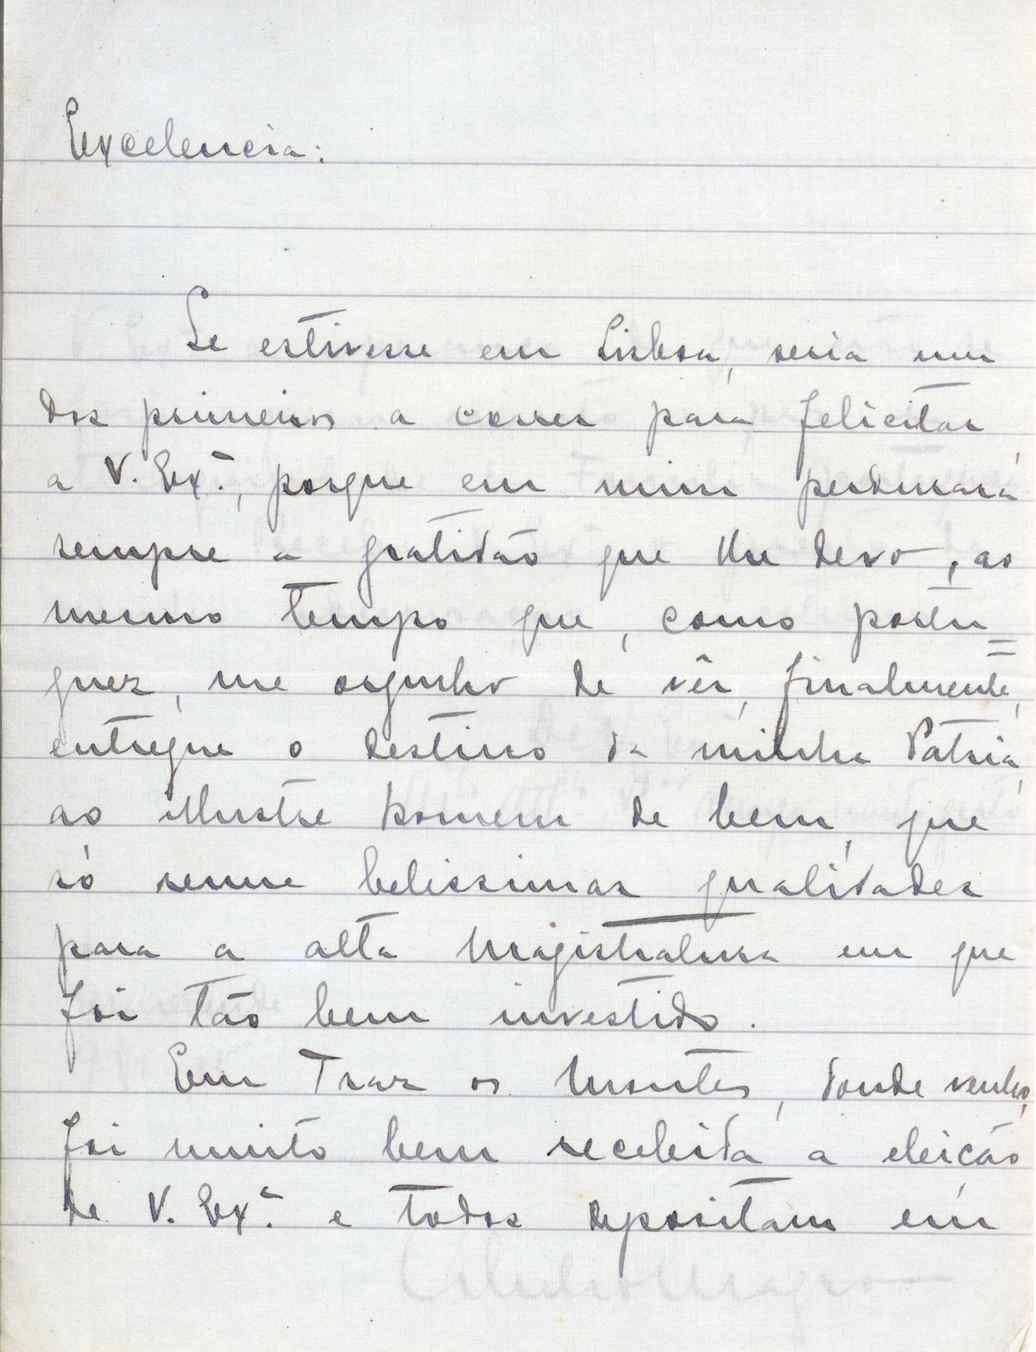 Excelencia:
Se estivesse em Lisboa, seria um
dos primeiros a correr para felicitar
a V. Exª., porque em mim perdurará
sempre a gratidão que lhe devo, ao
mesmo tempo que, como portu=
guez, me orgulho de vêr, finalmente,
entregue o destino da minha Patria,
ao illustre homem de bem, que
só reune belissimas qualidades
para a alta Magistratura em que
foi tão bem investido.
Em Traz os Montes, donde venho,
foi muito bem recebida a eleição
de V. Exª. e todos depositam em